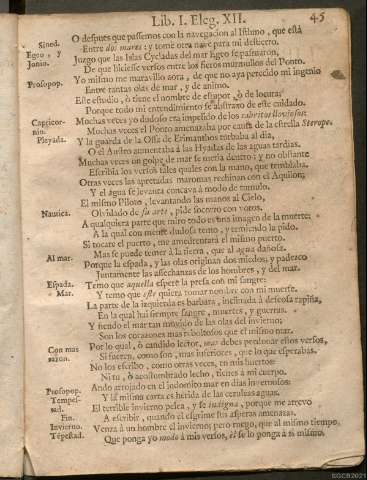 Lib. I. Eleg. XII. 45
O despues que passemos con la navegacion al Istmo, que està
Sined. Entre dos mares: y tomè otra nave para mi destierro.
Egeo, y Juzgo que las Islas Cycladas del mar Egeo se pasmaron,
Jonio. De que hiciesse versos entre los fieros murmullos del Ponto.
Prosopop. Yo mismo me maravillo aora, de que no aya perecido mi ingenio
Entre tantas olas de mar, y de animo.
Este estudio, ò tiene el nombre de estupor, ò de locura;
Porque todo mi entendimiento se abstraxo de este cuidado.
Capricor- Muchas veces yo dudoso era impelido de los cabritos lluviosos:
nin. Muchas veces el Ponto amenazaba por causa de la estrella Sterope.
Pleyada. Y la guarda de la Ossa de Erimanthos turbaba al dia,
O el Austro aumentaba à las Hyadas de las aguas tardias.
Muchas veces un golpe de mar se metia dentro; y no obstante
Escribia los versos tales quales con la mano, que temblaba.
Otras veces las apretadas maromas rechinan con el Aquilon;
Y el agua se levanta concava à modo de tumulo.
El mismo Piloto, levantando las manos al Cielo,
Nautica. Olvidado de su arte, pide socorro con votos.
A qualquiera parte que miro todo es una imagen de la muerte;
A la qual con mente dudosa temo, y temiendo la pido.
Si tocare el puerto, me amedrentarà el mismo puerto.
Al mar. Mas se puede temer à la tierra, que al agua dañosa.
Porque la espada, y las olas originan dos miedos; y padezco
Juntamente las assechanzas de los hombres, y del mar.
Espada. Temo que aquella espere la presa con mi sangre:
Mar. Y temo que este quiera tomar nombre con mi muerte.
La parte de la izquierda es barbara, inclinada à deseosa rapiña,
En la qual hai siempre sangre, muertes, y guerras.
Y siendo el mar tan movido de las olas del invierno;
Son los corazones mas revoltosos que el mismo mar.
Con mas Por lo qual, ò candido lector, mas debes perdonar estos versos,
razon. Si fueren, como son, mas inferiores, que lo que esperabas.
No los escribo, como otras veces, en mis huertos:
Ni tu, ò acostumbrado lecho, tienes à mi cuerpo.
Prosopop. Ando arrojado en el indomito mar en dias invernosos:
Tempes- Y la misma carta es herida de las ceruleas aguas.
tad. El terrible invierno pelea, y se indigna, porque me atrevo
Fin. A escribir, quando el esgrime sus asperas amenazas.
Invierno. Venza à un hombre el invierno; pero ruego, que al mismo tiempo,
Tẽpestad. Que ponga yo modo à mis versos, èl se lo ponga à si mismo.
EGCB2021